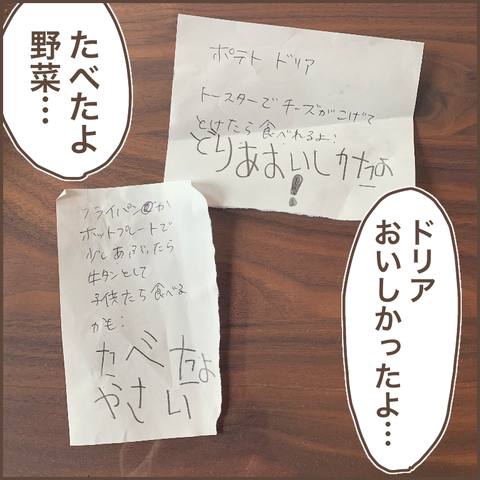 たべたよ
野菜…
ポテト ドリア
トースターでチーズがこげて
とけたら食べれるよ!
どりあおいしかたよ
!
フライパンか
ホットプレートで
少しあぶったら
牛タンとして
子供たち食べる
かも!
たべたよ
やさい
ドリア
おいしかったよ…